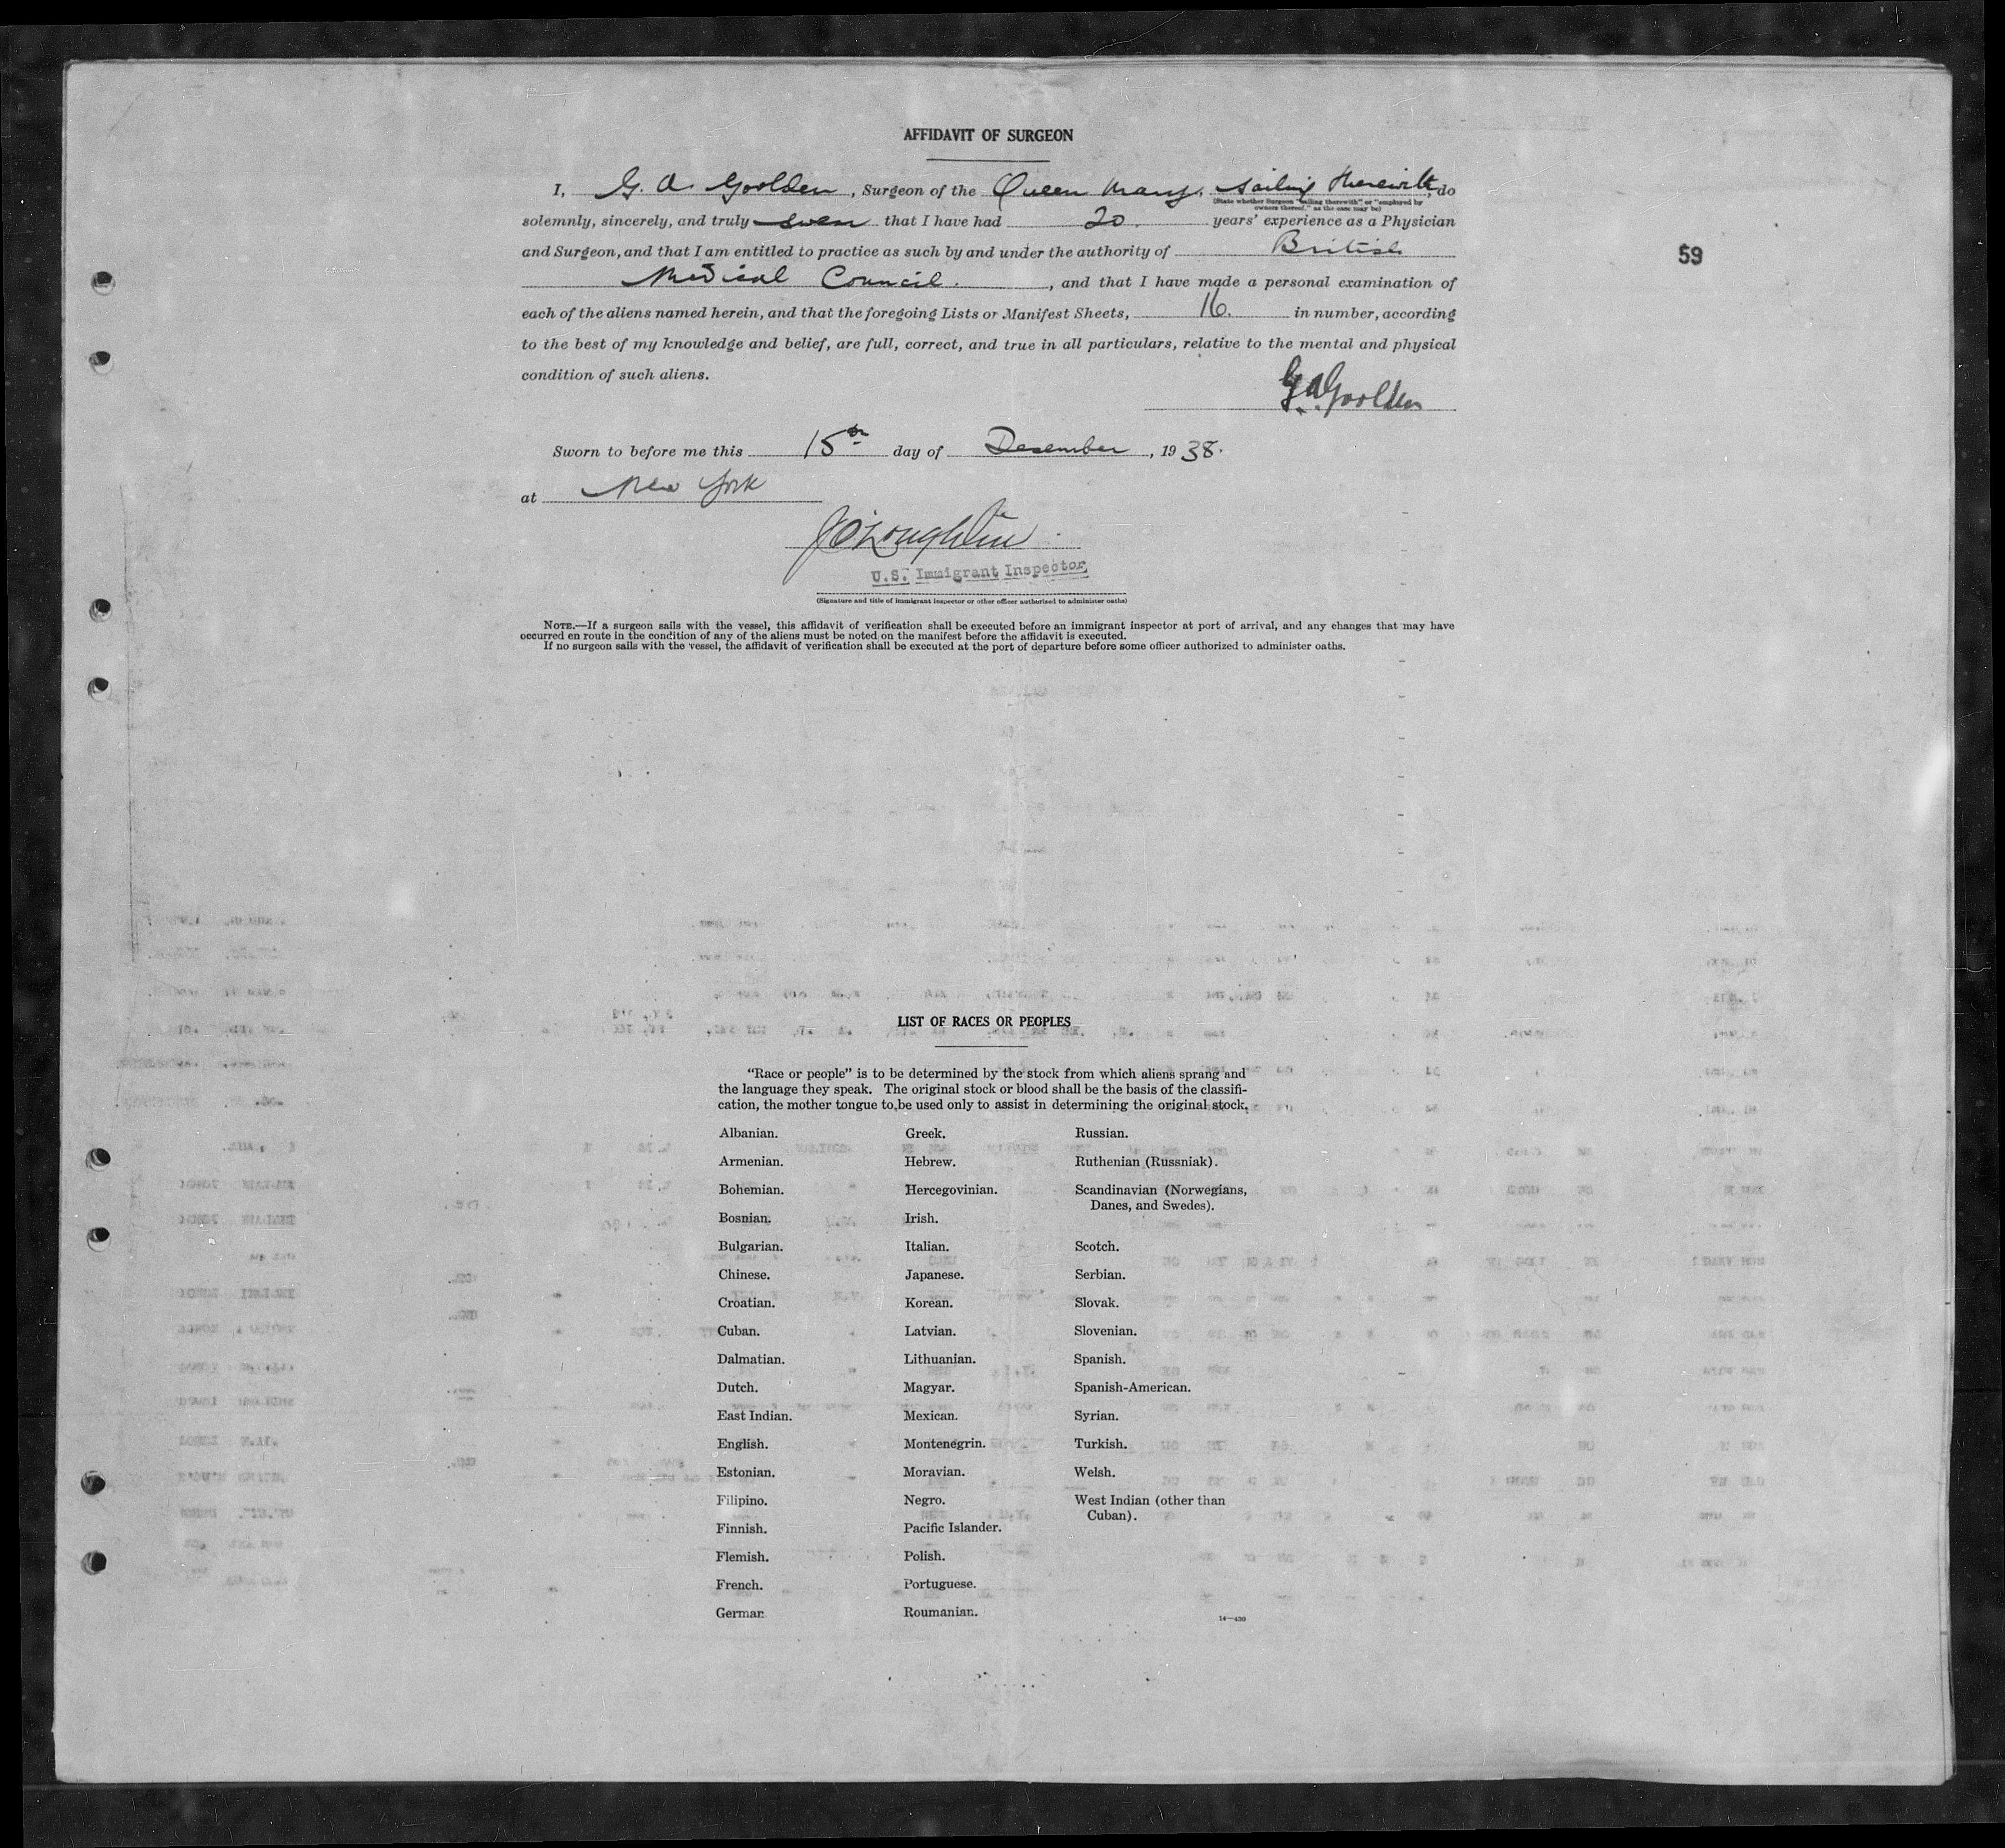 AFFIDAVIT OF SURGEON
I, G. A. Goolden, Surgeon of the Queen Mary, sailing therewith, do
(State whether Surgeon "sailing therewith" or "employed by
owners thereof," as the case may be)
solemnly, sincerely, and truly swear that I have had 20. years' experience as a Physician
and Surgeon, and that I am entitled to practice as such by and under the authority of British
Medical Council., and that I have made a personal examination of
59
each of the aliens named herein, and that the foregoing Lists or Manifest Sheets, 16. in number, according
to the best of my knowledge and belief, are full, correct, and true in all particulars, relative to the mental and physical
condition of such aliens.
G. A. Goolden
Sworn to before me this 15th day of December, 1938.
at New York
J O'Loughlin
U.S. Immigrant Inspector
(Signature and title of immigrant inspector or other officer authorized to administer oaths)
NOTE.—If a surgeon sails with the vessel, this affidavit of verification shall be executed before an immigrant inspector at port of arrival, and any changes that may have
occurred en route in the condition of any of the aliens must be noted on the manifest before the affidavit is executed.
If no surgeon sails with the vessel, the affidavit of verification shall be executed at the port of departure before some officer authorized to administer oaths.
LIST OF RACES OR PEOPLES
"Race or people" is to be determined by the stock from which aliens sprang and
the language they speak. The original stock or blood shall be the basis of the classifi-
cation, the mother tongue to be used only to assist in determining the original stock.
Albanian.
Armenian.
Bohemian.
Bosnian.
Bulgarian.
Chinese.
Croatian.
Cuban.
Dalmatian.
Dutch.
East Indian.
English.
Estonian.
Filipino.
Finnish.
Flemish.
French.
German
Greek.
Hebrew.
Hercegovinian.
Irish.
Italian.
Japanese.
Korean.
Latvian.
Lithuanian.
Magyar.
Mexican.
Montenegrin.
Moravian.
Negro.
Pacific Islander.
Polish.
Portuguese.
Roumanian.
Russian.
Ruthenian (Russniak).
Scandinavian (Norwegians,
Danes, and Swedes).
Scotch.
Serbian.
Slovak.
Slovenian.
Spanish.
Spanish-American.
Syrian.
Turkish.
Welsh.
West Indian (other than
Cuban).
14—430